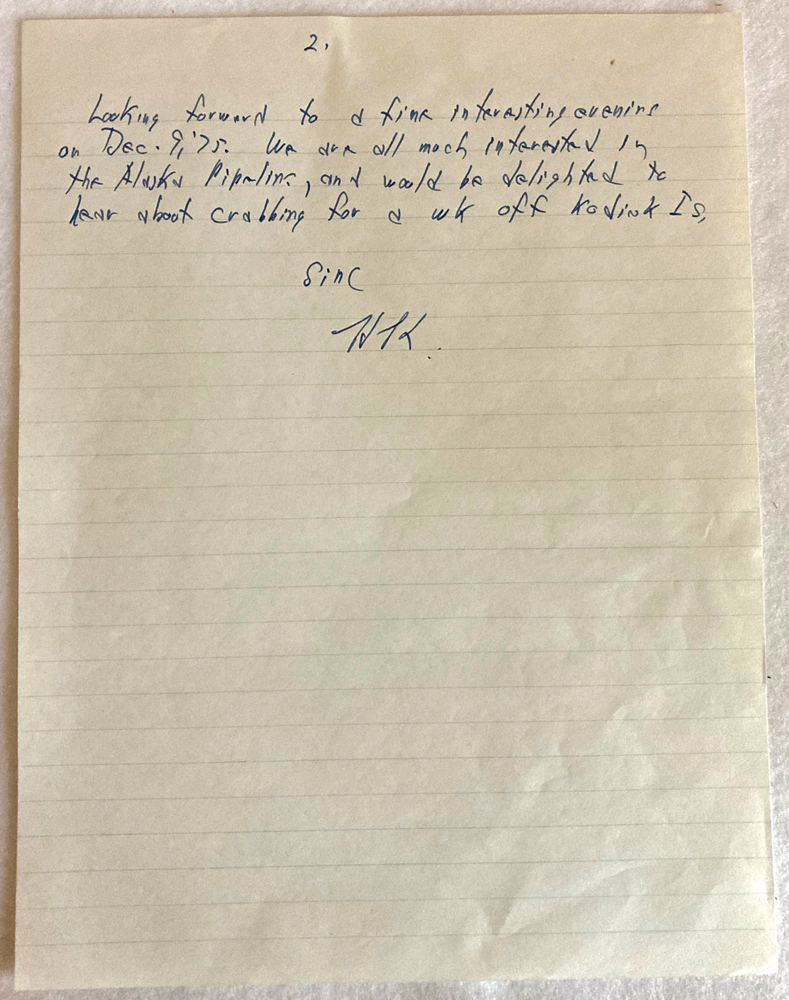 2.
Looking forward to a fine interesting evening
on Dec. 9, '75. We are all much interested in
the Alaska Pipeline, and would be delighted to
hear about crabbing for a wk off Kodiak Is.
Sinc